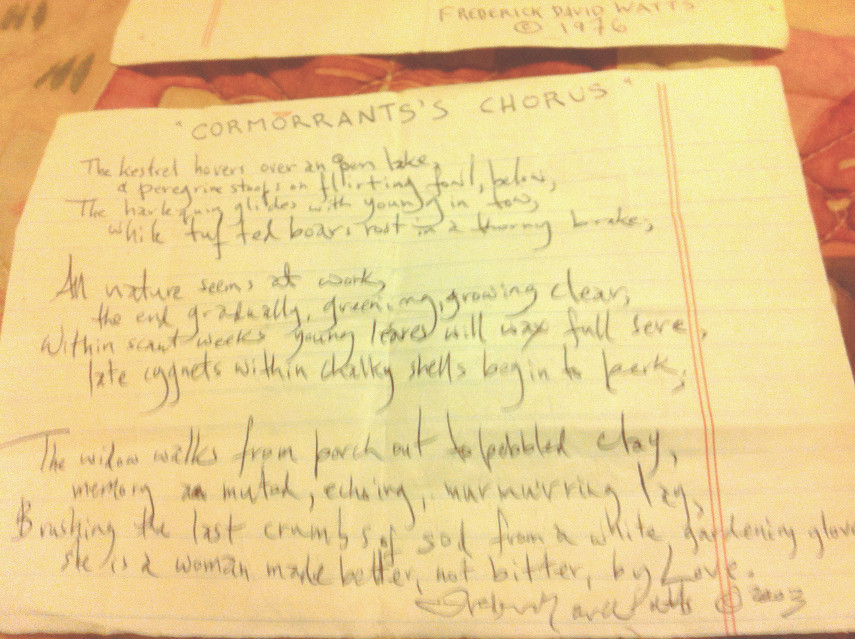 FREDERICK DAVID WATTS
© 1976
"CORMORRANTS'S CHORUS"
The kestrel hovers over an open lake,
a peregrine stoops on flirting fowl, below,
The harlequin glides with young in tow,
while tufted boars root in a thorny brake;
All nature seems at work,
the end gradually, greening, growing clear;
Within scant weeks young leaves will wax full sere,
late cygnets within chalky shells begin to perk;
The widow walks from porch out to pebbled clay,
memory a muted, echoing, murmurring lay,
Brushing the last crumbs of sod from a white gardening glove
she is a woman made better, not bitter, by Love.
Frederick David Watts © 2003